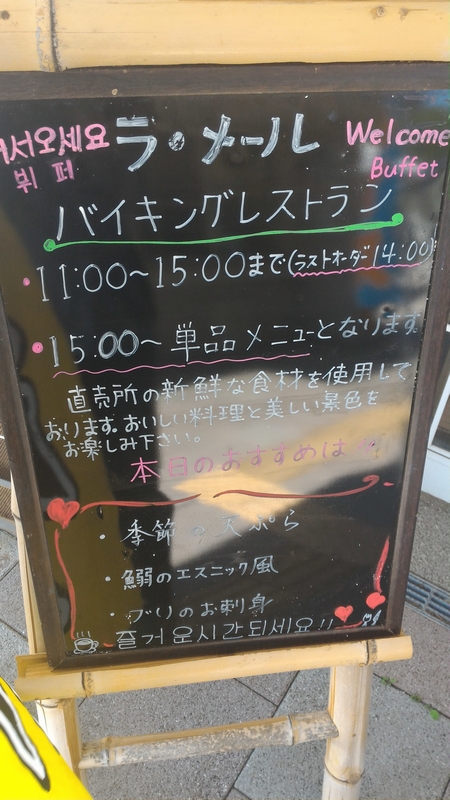 어서오세요 ラ・メール Welcome
뷔 페 Buffet
バイキングレストラン
・11:00～15:00まで(ラストオーダー14:00)
・15:00～単品メニューとなります
直売所の新鮮な食材を使用して
おります。おいしい料理と美しい景色を
お楽しみ下さい。
本日のおすすめは
・季節の天ぷら
・鰯のエスニック風
・ブリのお刺身
즐거운시간되세요!!